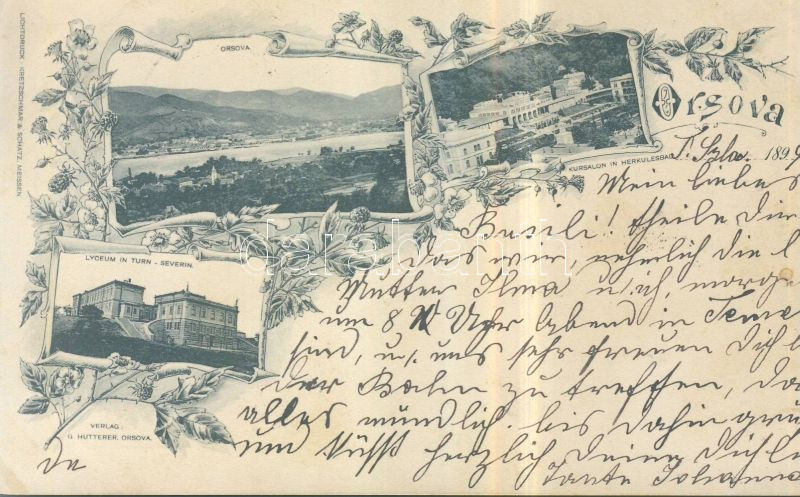 LICHTDRUCK KRETZSCHMAR & SCHATZ, MEISSEN
ORSOVA
KURSALON IN HERKULESBAD
Orsova
1899
LYCEUM IN TURN - SEVERIN.
VERLAG:
G. HUTTERER, ORSOVA.
darabanth
Mein liebes
Busili! theile Dir
das wir, nehmlich die l
Mutter Ilma u. ich, morge
um 8 Uhr Abend in Teme
sind, u. uns sehr freuen Dich b
der Bahn zu treffen, da
alles mündlich. bis dahin grü
und küsst herzlich Deine Dich l
Tante Johanna